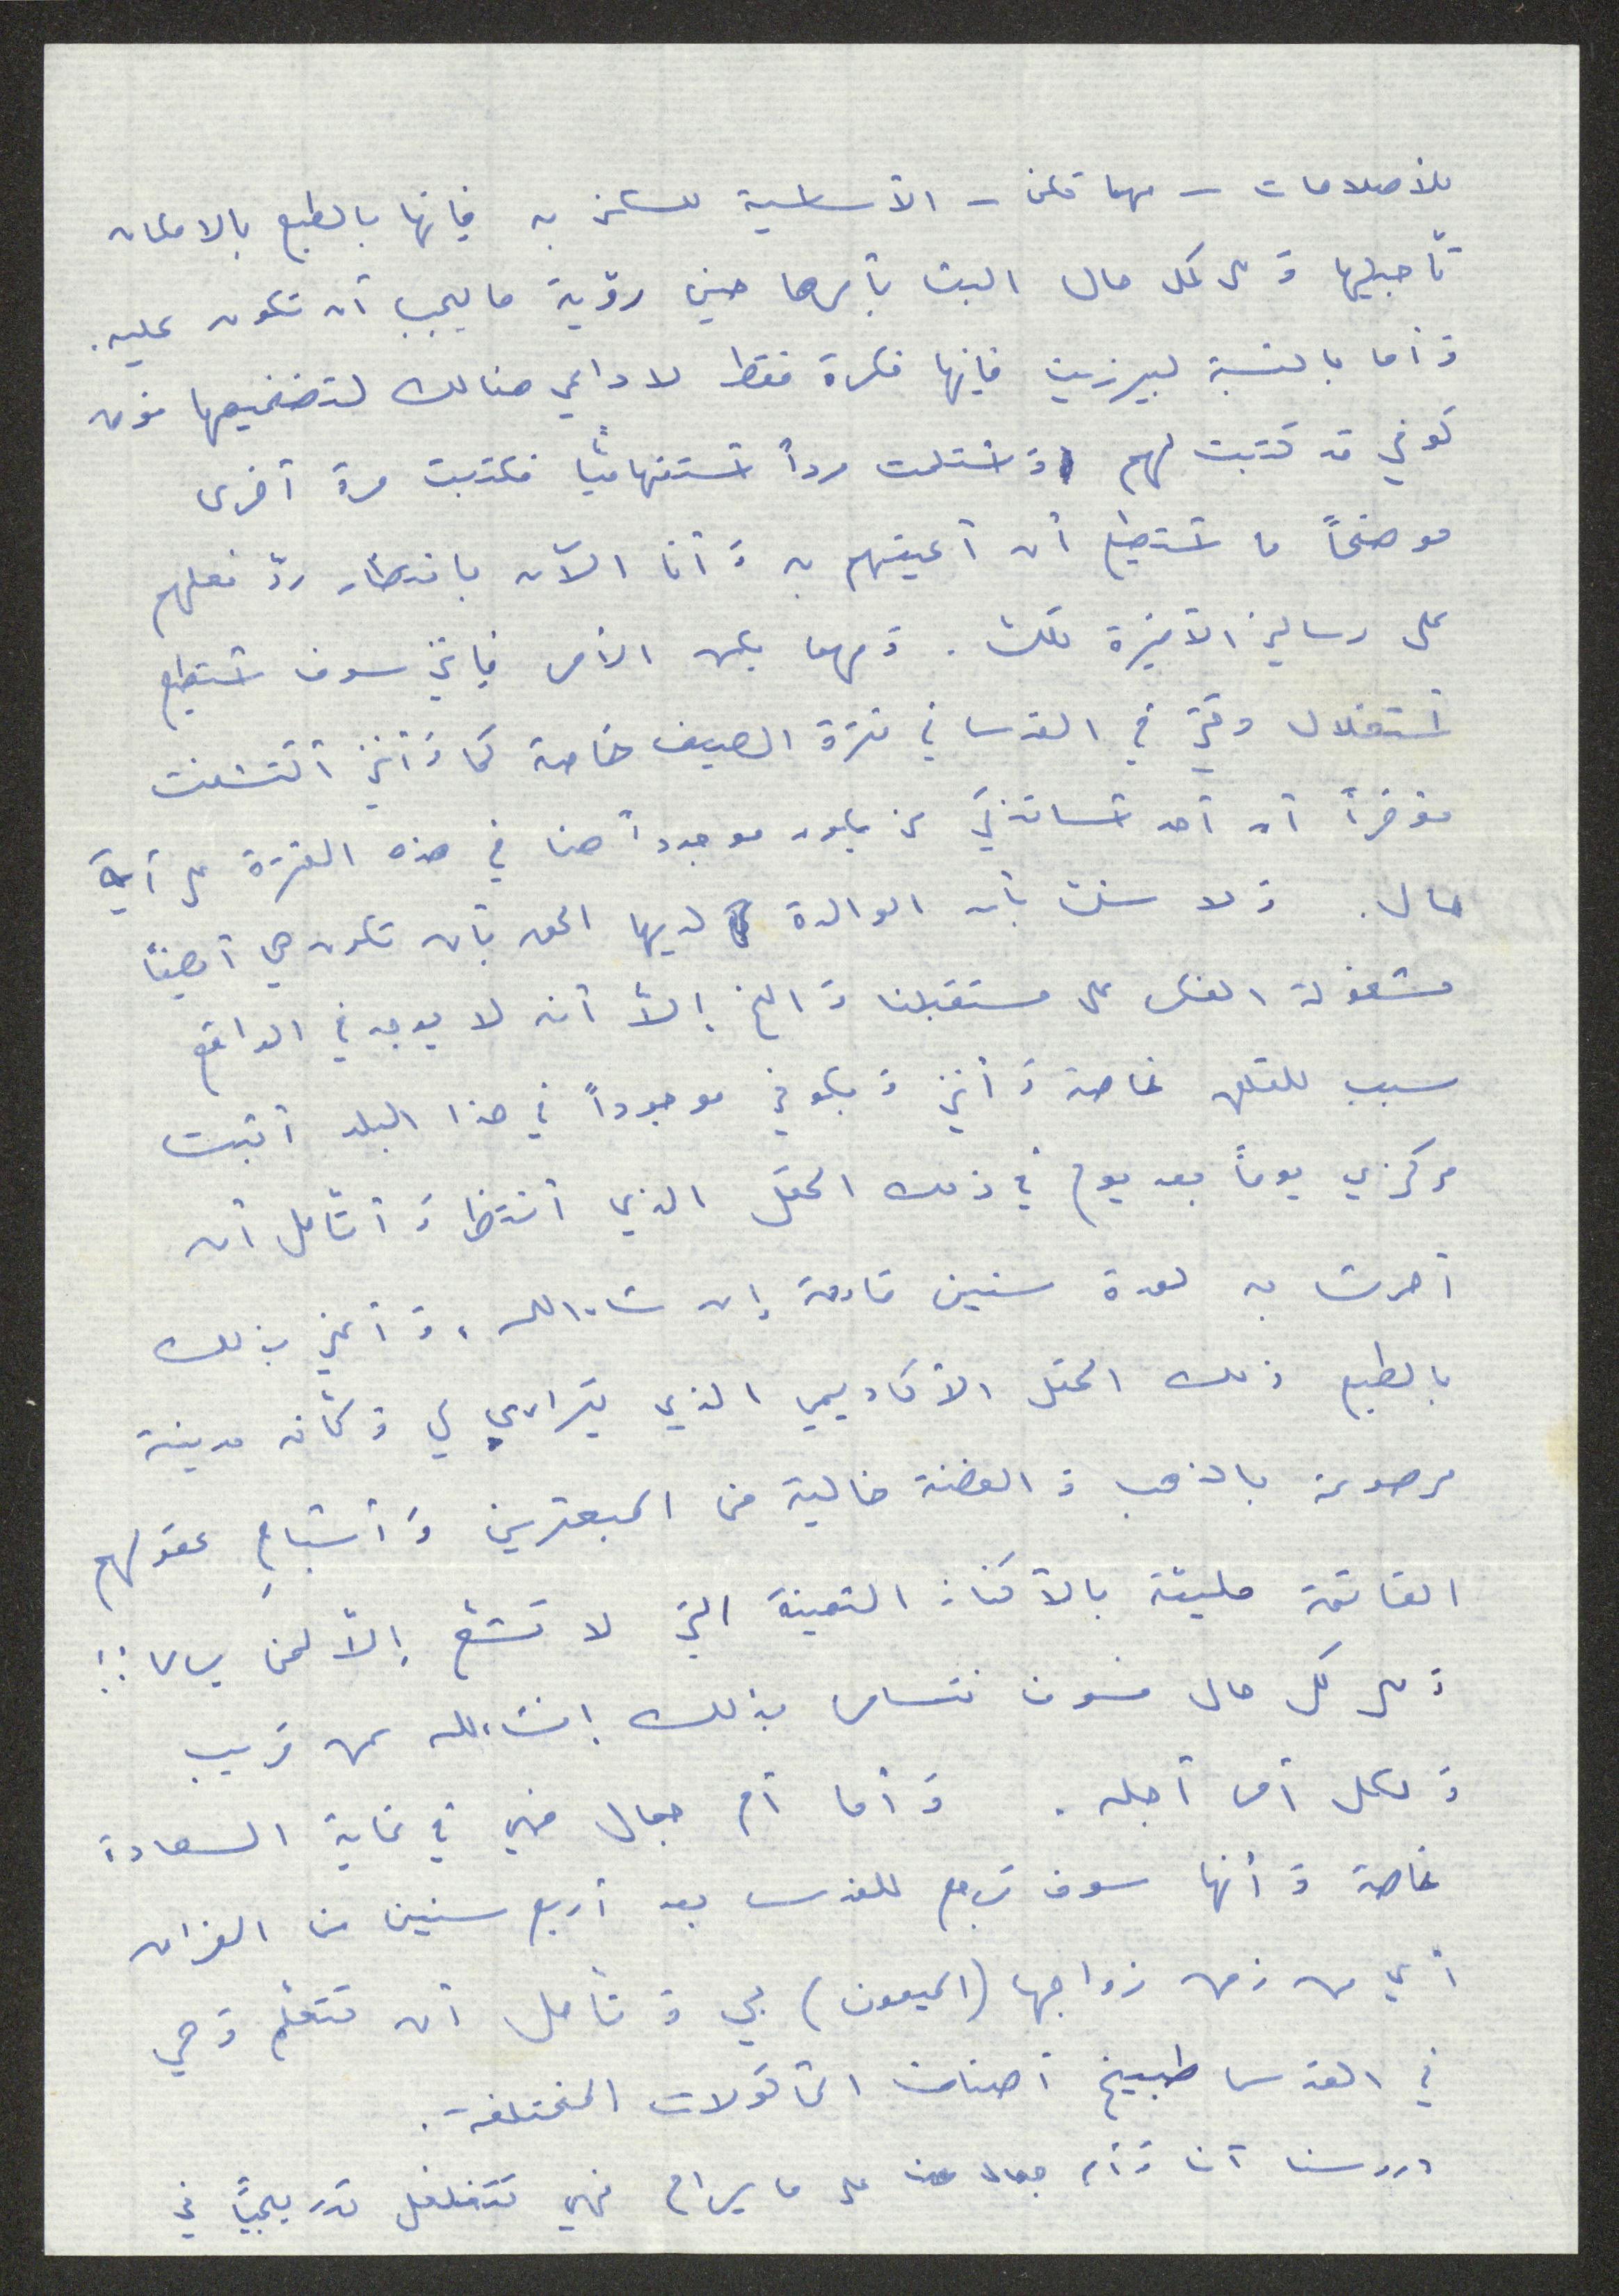 للأصلاحات – مهما تكن – الأساسية للسكن به فإنها بالطبع بالامكان
تأجيلها وَعلى كل حال البت بأمرها حين رؤية ما يجب أن تكون عليه.
وَأما بالنسبة لبيرزيت فإنها فكرة فقط لا داعي هنالك لتضخيمها فوق
كوني قد كتبت لهم وَ استلمت رداً استفهامياً فكتبت مرة أخرى
موضحاً ما أستطيع أن أعينهم به وَ أنا الآن بانتظار ردّ فعلهم
على رسالتي الأخيرة تلك. وَمهما يكن الأمر فإنني سوف أستطيع
أستغلال وقتي في القدس في فترة الصيف خاصة كما وَأنني أكتشفت
مؤخراً أن أحد أساتذتي لن يكون موجوداً هنا في هذه الفترة على أية
حال. وَ لا شك بأن الوالدة لديها الحق بأن تكون هي أيضاً
مشغولة الفكر على مستقبلنا وَ الخ إلاّ أنه لا يوجد في الواقع
سبب للقلق خاصة وَ أنني وَ بكوني موجوداً في هذا البلد أثبت
مركزي يوماً بعد يوم في ذلك الحقل الذي أنتظر وَ أتأمل أن
أحرث به لعدة سنين قادمة إن شاء الله، وَ أعني بذلك
بالطبع ذلك الحقل الأكاديمي الذي يتراءى لي وَ كأنه مدينة
مرصوعة بالذهب وَ الفضة خالية من المبعثرين وَ أشباهِ عقولهم
الفائقة مليئة بالأكناز الثمينة التي لا تشع إلاّ لمن يسأل!!
وَ على كل حال فسوف نتسامر بذلك إنشاء الله عن قريب
وَ لكل أمر أجله. وَ أما أم جمال فهي في غاية السعادة
خاصة وَ أنها سوف ترجع للقدس بعد أربع سنين من الفراق
أي من زمن زواجها (الميمون) بي وَ تأمل أن تتعلم وَ هي
في القدس طبيخ أصناف المأكولات المختلفة.
دروسنا أنا وَأم جمال على ما يرام فهي تتغلغل تدريجياً في